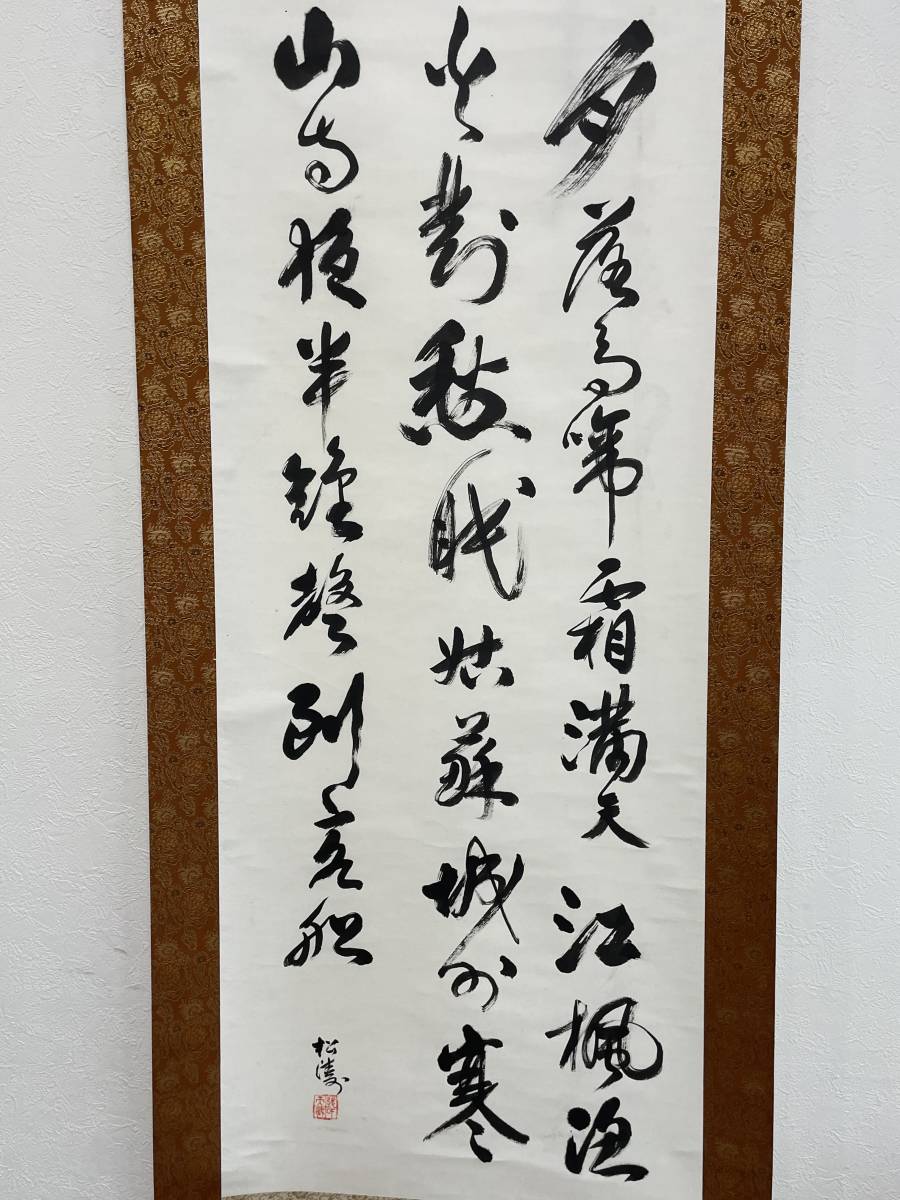 月落烏啼霜滿天江楓漁
火對愁眠姑蘇城外寒
山寺夜半鐘聲到客船
松濤